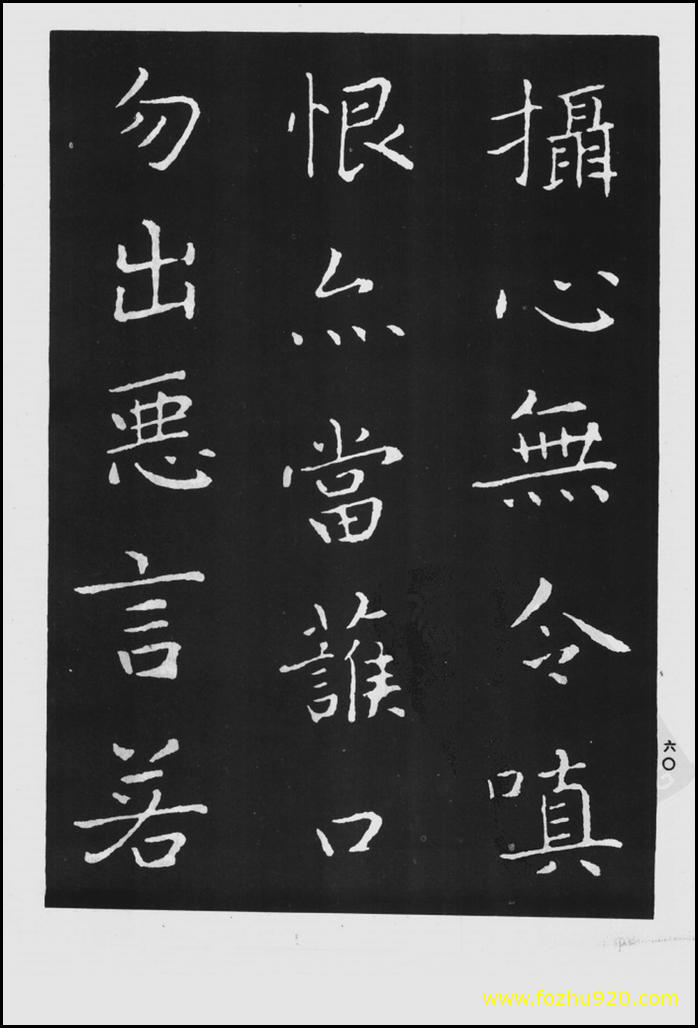 攝心無令嗔
恨亦當護口
勿出惡言若
六〇
www.fozhu920.com